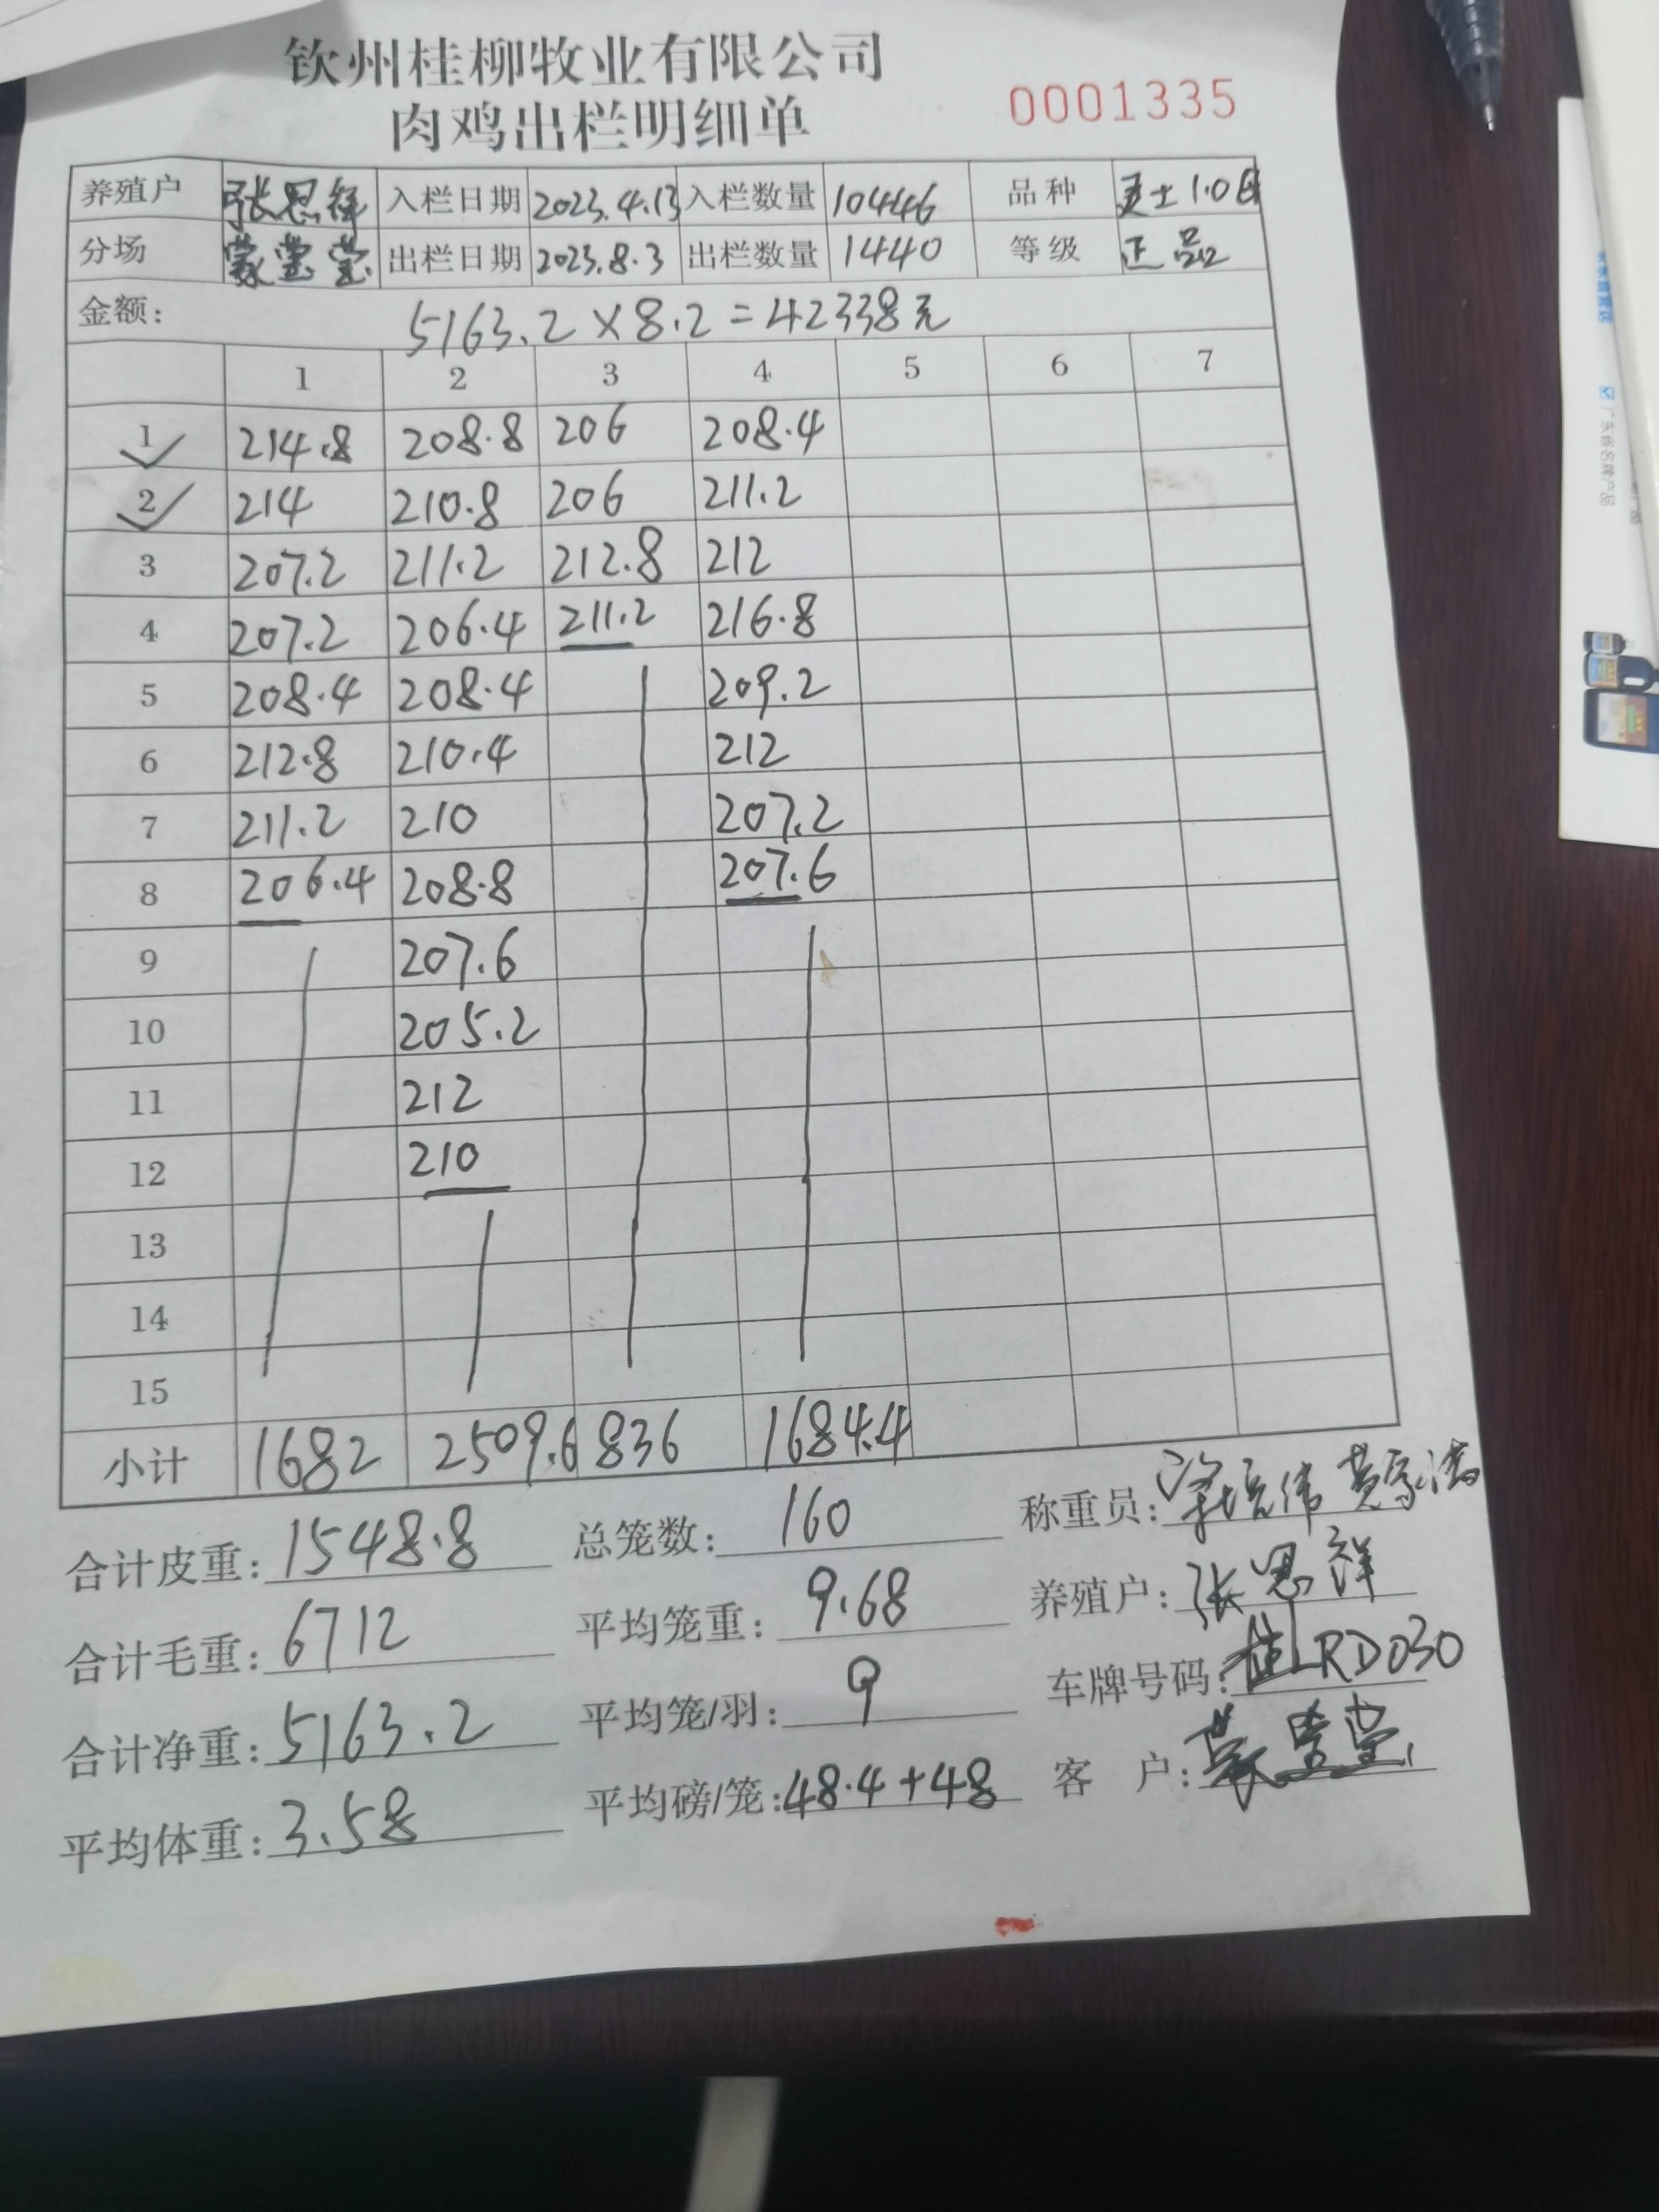 钦州桂柳牧业有限公司
肉鸡出栏明细单 0001335
养殖户 张恩祥 入栏日期 2023.4.13 入栏数量 10446 品种 1.0日
分场 出栏日期 2023.8.3 出栏数量 1440 等级 正品
金额: 5163.2×8.2=42338元
1 2 3 4 5 6 7
1 214.8 208.8 206 208.4
2 214 210.8 206 211.2
3 207.2 211.2 212.8 212
4 207.2 206.4 211.2 216.8
5 208.4 208.4 209.2
6 212.8 210.4 212
7 211.2 210 207.2
8 206.4 208.8 207.6
9 207.6
10 205.2
11 212
12 210
13
14
15
小计 1682 2509.6 836 1684.4
合计皮重: 1548.8 总笼数: 160 称重员:
合计毛重: 6712 平均笼重: 9.68 养殖户: 张恩祥
合计净重: 5163.2 平均笼/羽: 9 车牌号码: 桂LRD030
平均体重: 3.58 平均磅/笼: 48.4+48 客 户:
广东省名牌产品